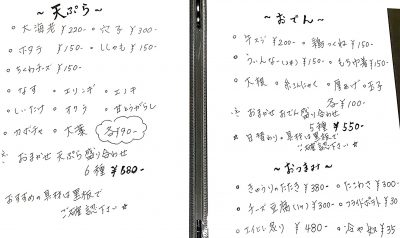 ～天ぷら～
○大海老 ¥220- ○穴子 ¥300-
○ホタテ ¥150- ○ししゃも ¥150-
○ちくわチーズ ¥150-
○なす ○エリンギ ○エノキ
○しいたけ ○オクラ ○甘とうがらし
○カボチャ ○大葉 各¥90-
※おまかせ 天ぷら盛り合わせ
6種 ¥680-
おすすめの具材は黒板で
ご確認下さい☆
～おでん～
○牛スジ ¥200- ○鶏つくね ¥150-
○ういんなー(2本) ¥150- ○もち巾着 ¥150-
○大根 ○糸こんにゃく ○厚あげ ○玉子
各¥100-
※おまかせ おでん盛り合わせ
5種 ¥550-
※日替わりの具材は黒板で
ご確認下さい☆
～おつまみ～
○きゅうりのたたき ¥380- ○たこわさ ¥300
○チーズ豆腐 ¥300- ○フライドポテト ¥30
○エイヒレ炙り ¥480- ○冷や奴 ¥35